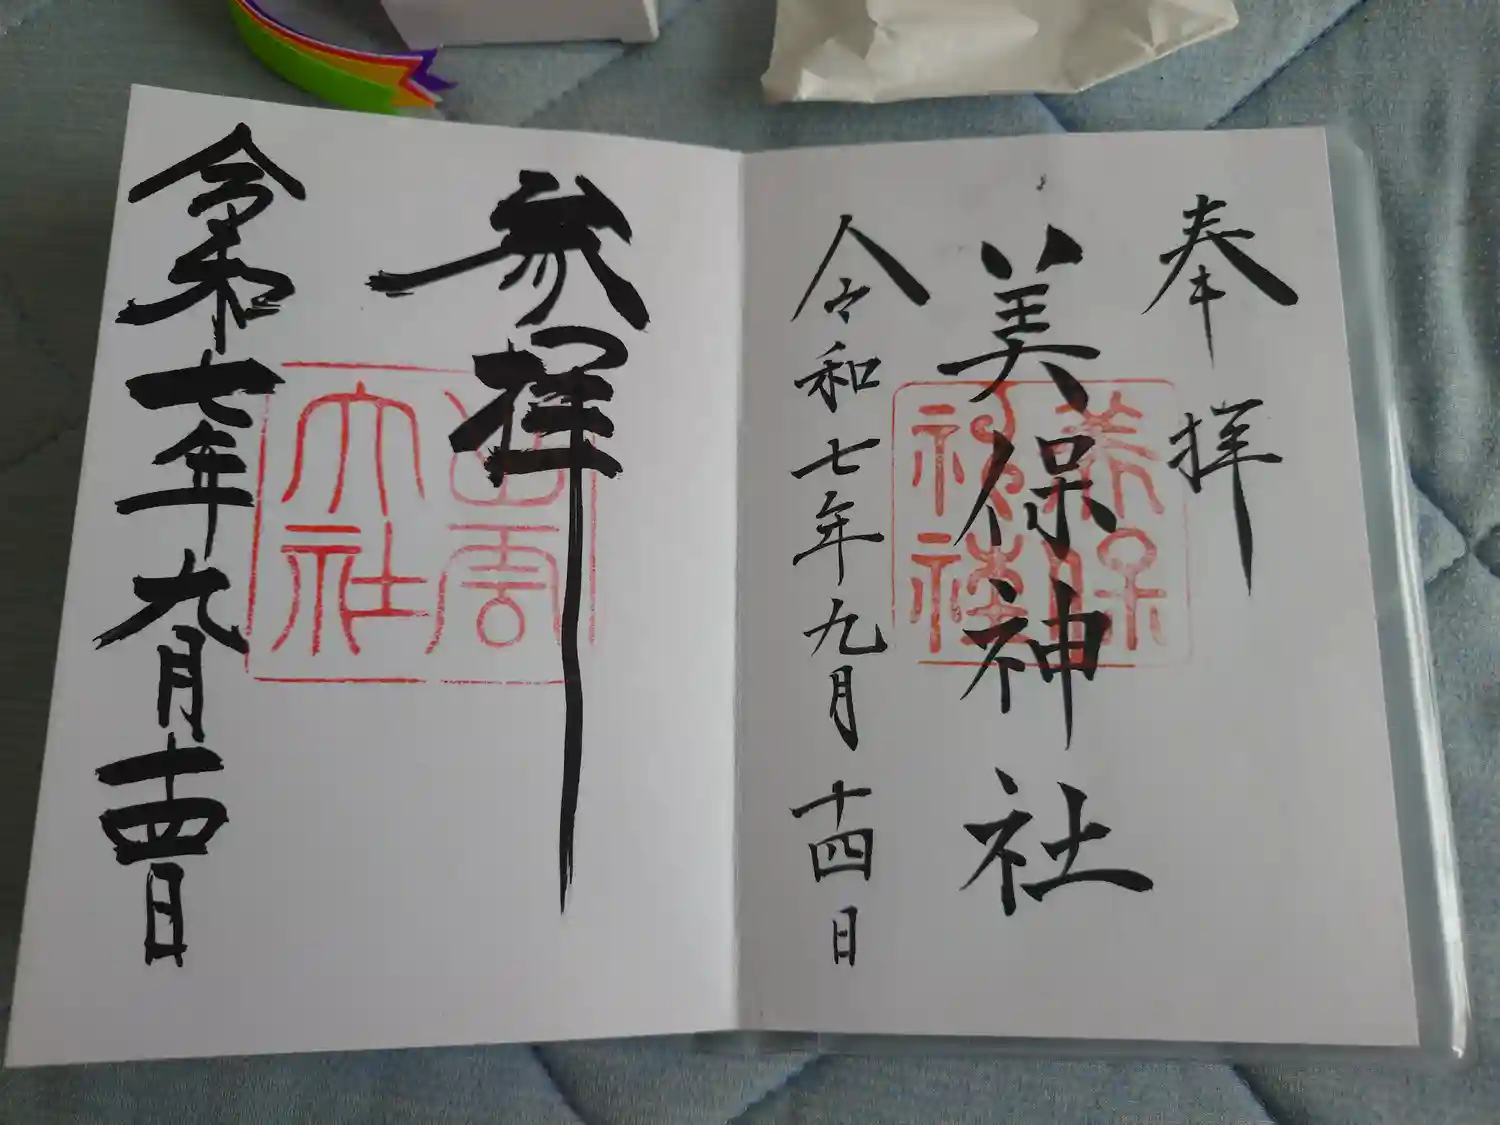 奉拝
美保神社
令和七年九月十四日
美保
神社
参拝
出雲
大社
令和七年九月十四日